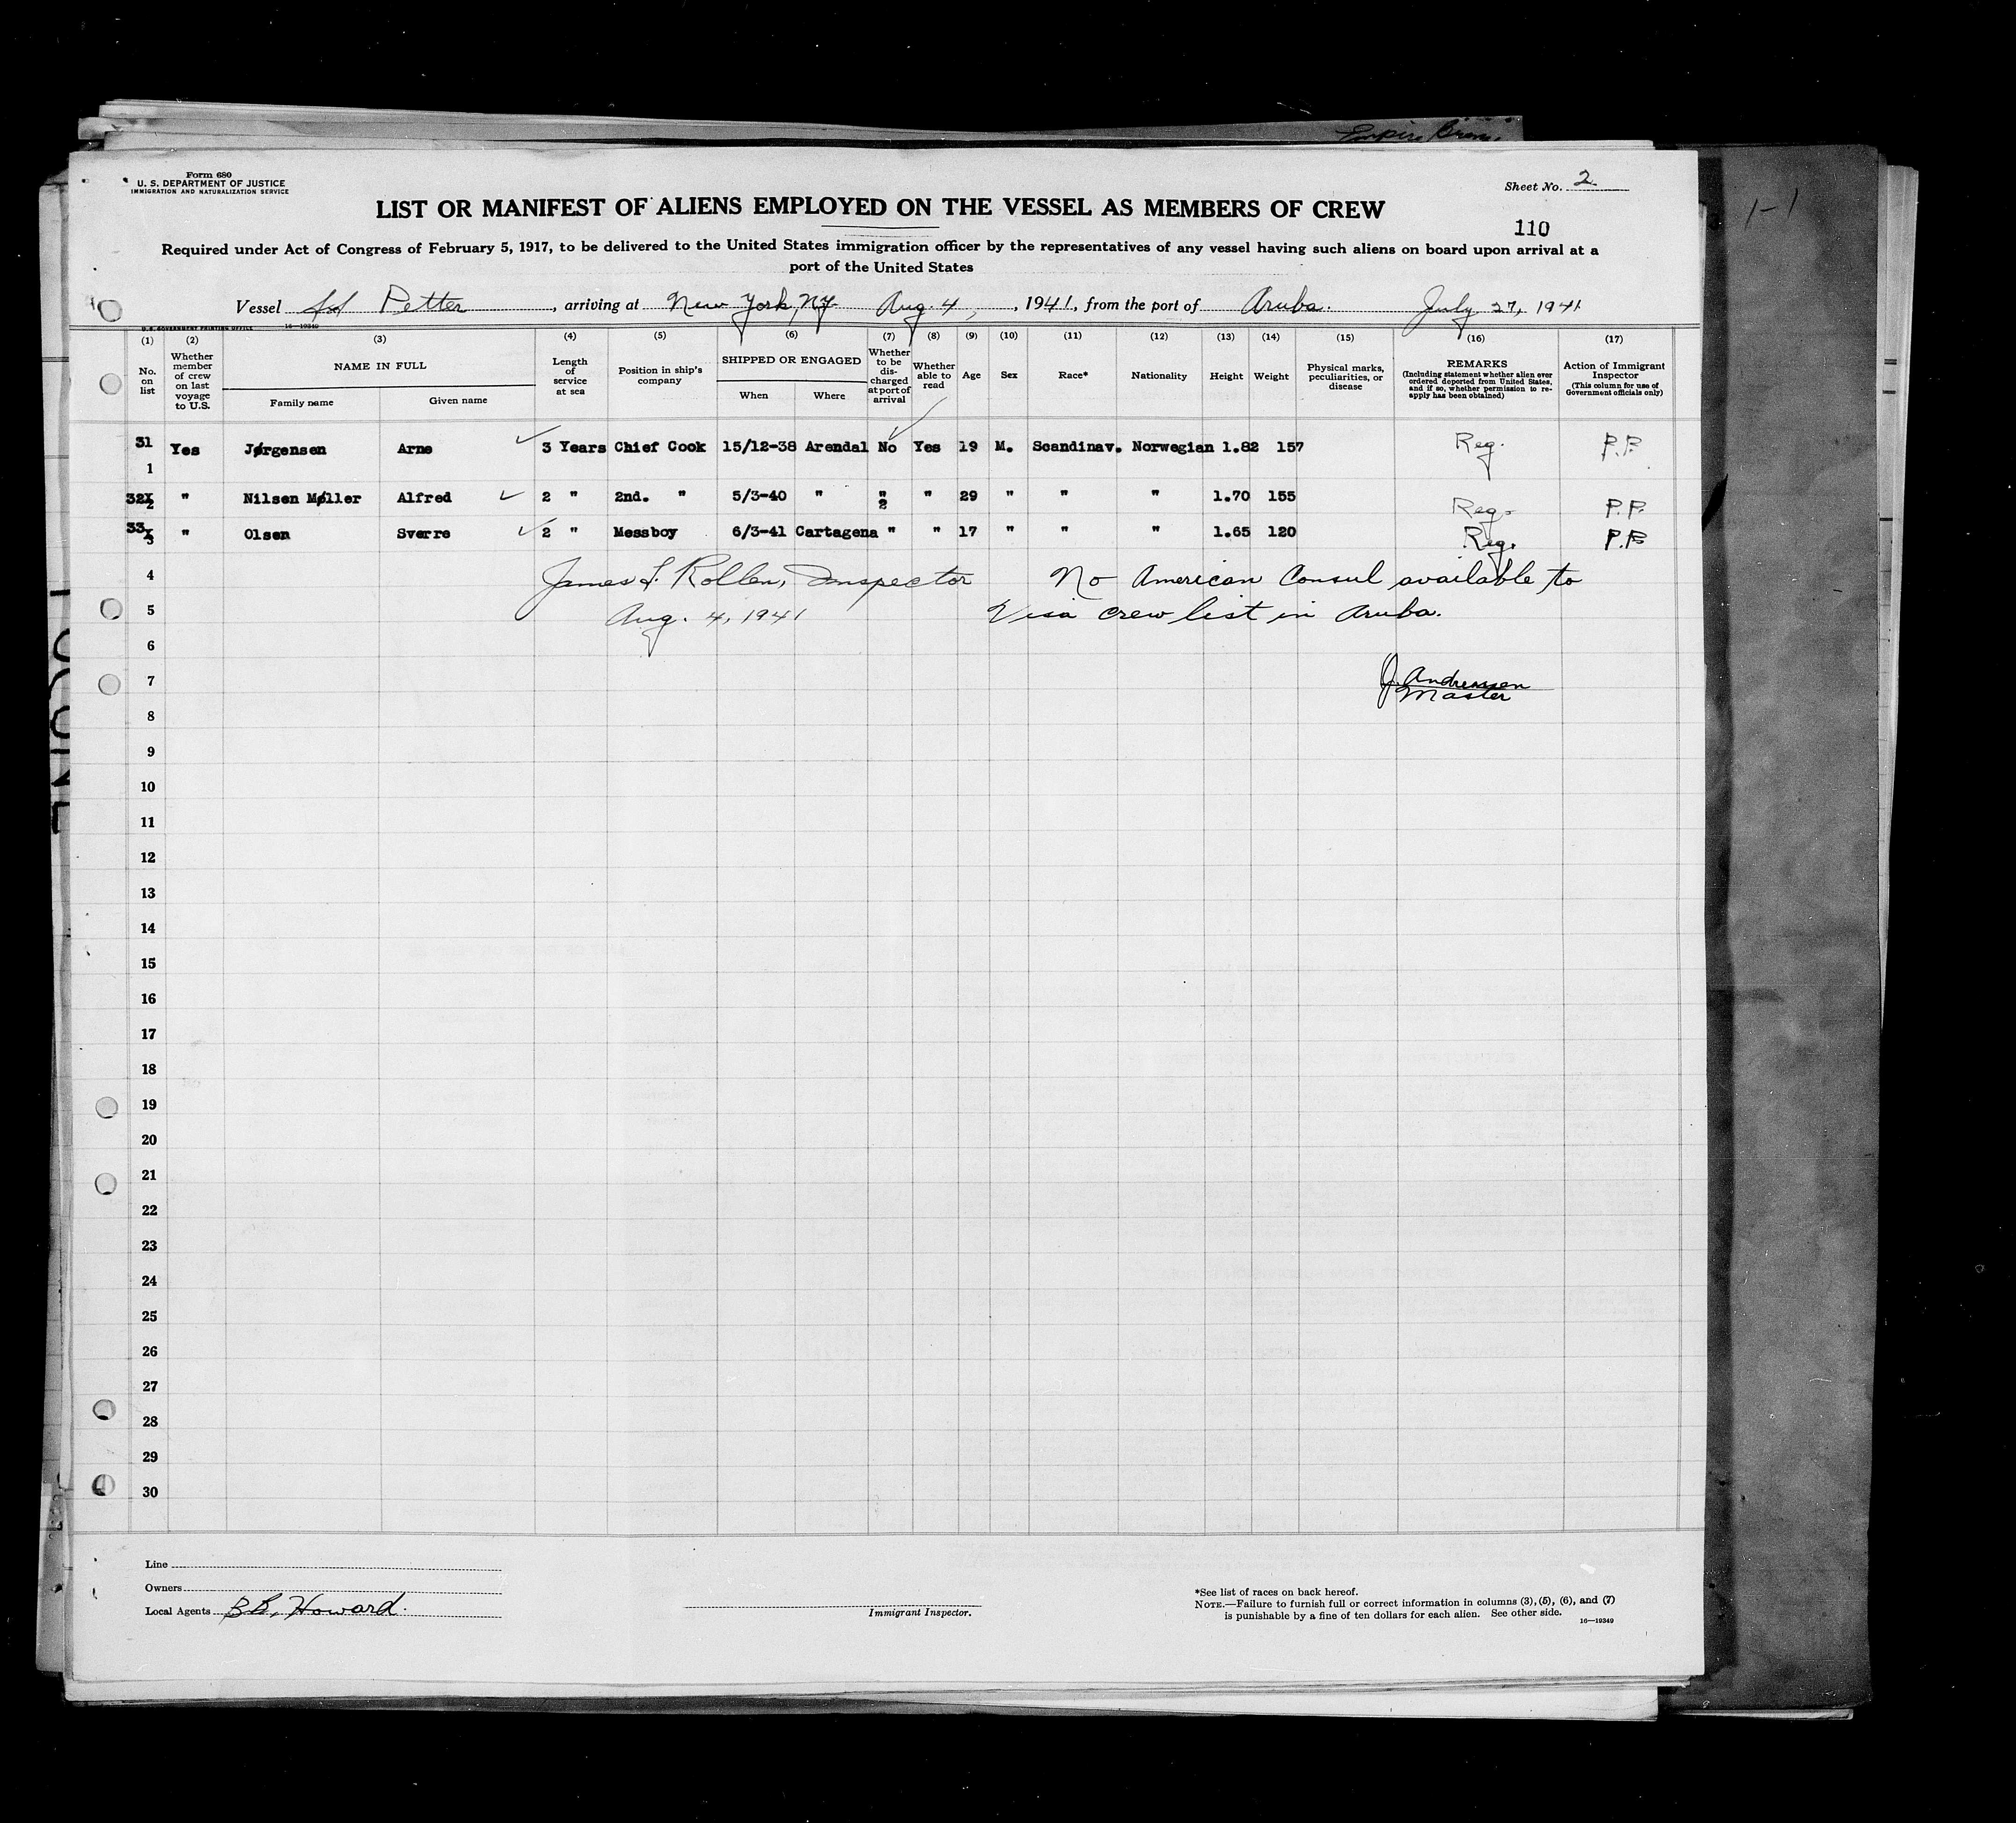 Empire
Form 680
U. S. DEPARTMENT OF JUSTICE
IMMIGRATION AND NATURALIZATION SERVICE
Sheet No. 2
LIST OR MANIFEST OF ALIENS EMPLOYED ON THE VESSEL AS MEMBERS OF CREW
110
Required under Act of Congress of February 5, 1917, to be delivered to the United States immigration officer by the representatives of any vessel having such aliens on board upon arrival at a
port of the United States
Vessel SS Petter, arriving at New York, NY. Aug. 4, 1941, from the port of Aruba. July 27, 1941
U. S. GOVERNMENT PRINTING OFFICE 16—19349
(1) (2) (3) (4) (5) (6) (7) (8) (9) (10) (11) (12) (13) (14) (15) (16) (17)
No. on list
Whether member of crew on last voyage to U.S.
NAME IN FULL
Family name
Given name
Length of service at sea
Position in ship's company
SHIPPED OR ENGAGED
When
Where
Whether to be discharged at port of arrival
Whether able to read
Age
Sex
Race*
Nationality
Height
Weight
Physical marks, peculiarities, or disease
REMARKS
(Including statement whether alien ever ordered deported from United States, and if so, whether permission to reapply has been obtained)
Action of Immigrant Inspector
(This column for use of Government officials only)
31 1 Yes Jørgensen Arne 3 Years Chief Cook 15/12-38 Arendal No Yes 19 M. Scandinav. Norwegian 1.82 157 Reg. P.P.
32 2 " Nilsen Møller Alfred 2 " 2nd. " 5/3-40 " " " 29 " " " 1.70 155 Reg. P.P.
33 3 " Olsen Sverre 2 " Messboy 6/3-41 Cartagena " " 17 " " " 1.65 120 Reg. P.P.
4 James L. Rollen, Inspector No American Consul available to
5 Aug. 4, 1941 Visa crew list in Aruba.
6
7 J. Andreassen
Master
8
9
10
11
12
13
14
15
16
17
18
19
20
21
22
23
24
25
26
27
28
29
30
Line
Owners
Local Agents B.B. Howard.
Immigrant Inspector.
*See list of races on back hereof.
NOTE.—Failure to furnish full or correct information in columns (3), (5), (6), and (7)
is punishable by a fine of ten dollars for each alien. See other side.
16—19349